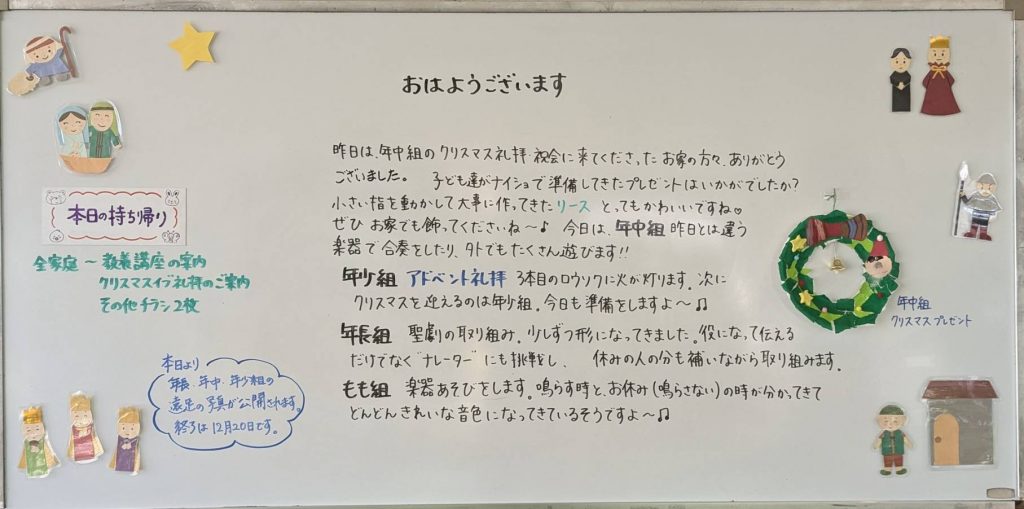 おはようございます
昨日は、年中組のクリスマス礼拝・祝会に来てくださったお家の方々、ありがとう
ございました。 子ども達がナイショで準備してきたプレゼントはいかがでしたか?
小さい指を動かして大事に作ってきたリース とってもかわいいですね♡
ぜひ お家でも飾ってくださいね〜♪ 今日は、年中組 昨日とは違う
楽器で合奏をしたり、外でもたくさん遊びます!!
年少組 アドベント礼拝 3本目のロウソクに火が灯ります。次に
クリスマスを迎えるのは年少組。今日も準備をしますよ〜♫
年長組 聖劇の取り組み。少しずつ形になってきました。役になって伝える
だけでなく"ナレーター"にも挑戦し、 休みの人の分も補いながら取り組みます。
もも組 楽器あそびをします。鳴らす時と、お休み(鳴らさない)の時が分かってきて
どんどんきれいな音色になってきているそうですよ〜♫
本日の持ち帰り
全家庭 〜 教養講座の案内
クリスマスイブ礼拝のご案内
その他チラシ2枚
本日より
年長・年中・年少組の
遠足の写真が公開されます。
終了は12月20日です。
年中組
クリスマスプレゼント